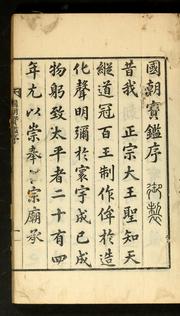 國朝寶鑑序 御製
昔我 正宗大王聖知天
縱道冠百王制作侔於造
化聲明彌於寰宇戊已咸
物躬致太平者二十有四
年尤以崇奉 宗廟承